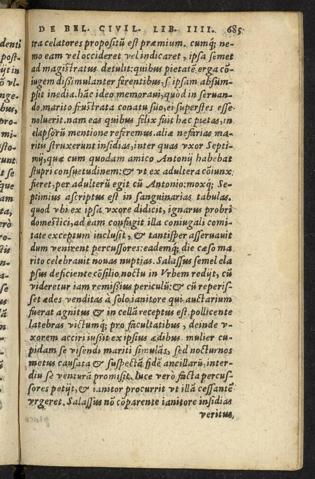 DE BEL. CIVIL. LIB. IIII. 685
tra celatores propositũ est præmium. cumq́; ne-
mo eam vel occideret vel indicaret, ipsa semet
ad magistratus detulit: quibus pietatẽ erga cõ-
iugem dissimulanter ferentibus, se ipsam absũm-
psit inedia. hãc ideo memoraui, quòd in seruan-
do marito frustrata conatu suo, ei superstes esse
noluerit. nam eas quibus felix fuit hæc pietas, in
elapsorũ mentione referemus. aliæ nefarias ma-
ritu struxerunt insidias, inter quas vxor Septi-
mÿ, quæ cum quodam amico Antonÿ habebat
stupri consuetudinem: & vt ex adultera cõiunx
fieret, per adulterũ egit cũ Antonio: moxq́; Se-
ptimius ascriptus est in sanguinarias tabulas.
quod vbi ex ipsa vxore didicit, ignarus probri
domestici, ad eam confugit illa coniugali comi-
tate exceptum inclusit, & tantisper asseruauit
dum venirent percussores: eademq́; die cæso ma
rito celebrauit nouas nuptias. Salassus semel ela
psus deficiente cõsilio, noctu in Vrbem redÿt, cũ
videretur iam remissius periculũ: & cũ reperis-
set ædes venditas à solo ianitore qui auctarium
fuerat agnitus & in cellã receptus est. pollicente
latebras victumq́; pro facultatibus, deinde v-
xorem acciri iussit ex ipsius ædibus. mulier cu-
pidam se visendi mariti simulãs, sed nocturnos
metus causata & suspectã fidẽ ancillarũ, inter-
diu se venturã promisit. luce verò facta percus-
sores petÿt, & ianitor procurrit vt illã cessantẽ
vrgeret. Salassus nõ cõparente ianitore insidias
veritus,